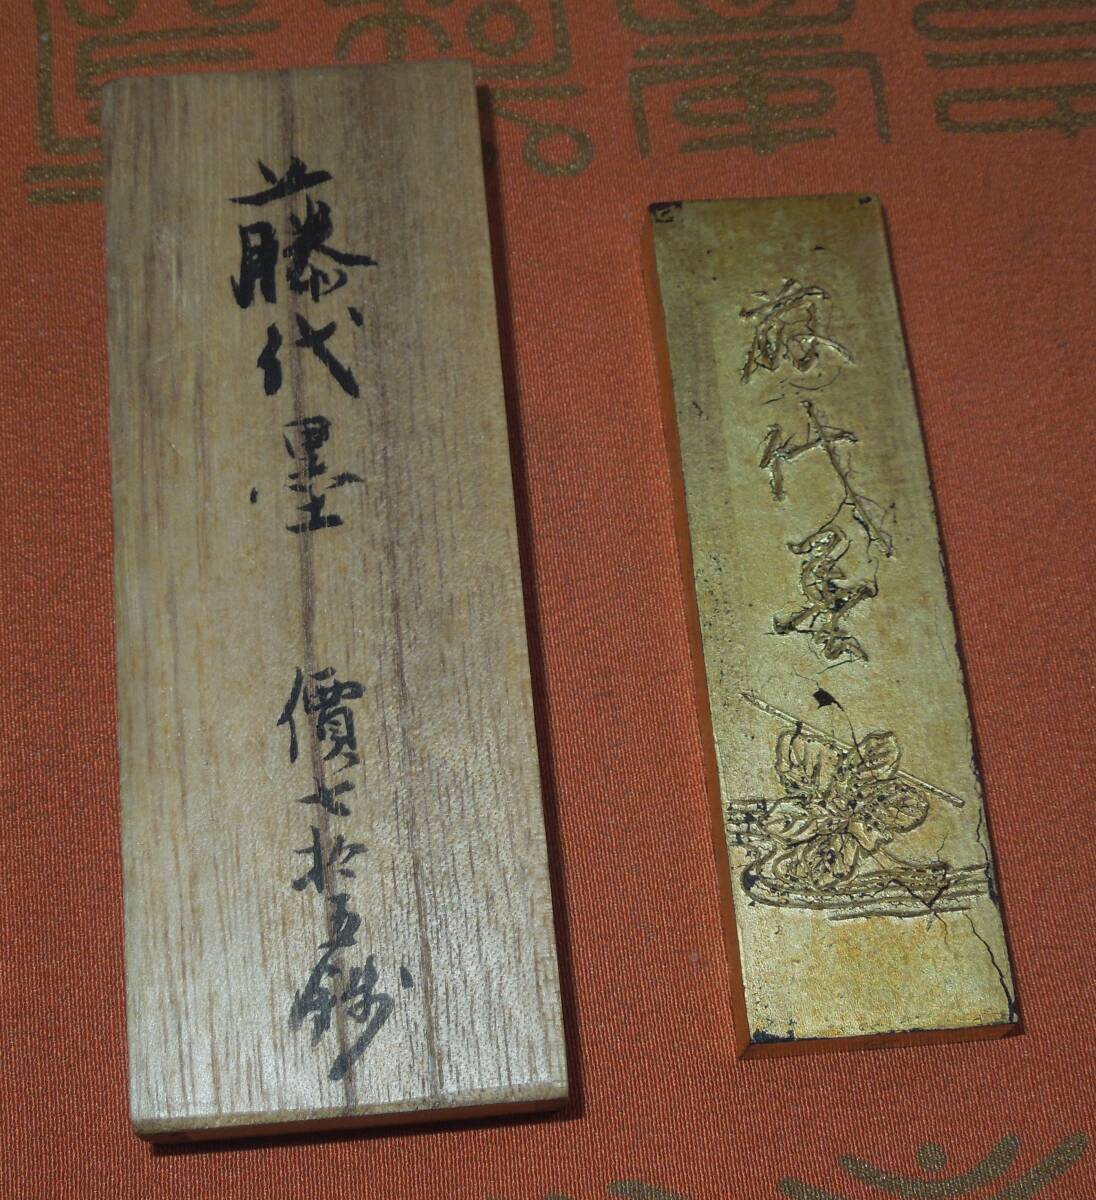 藤代墨
價七拾五錢
藤代墨